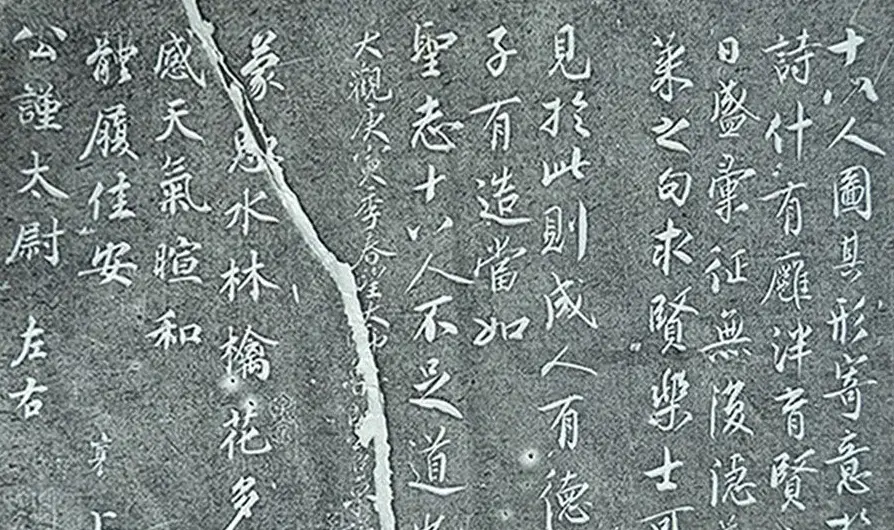 十八人圖其形寄意於
詩什有雁泮育賢
日盛彙征無復遺
萊之句求賢樂士可
見於此則成人有德
子有造當如
聖志十八人不足道
大觀庚寅季春
蒙恩水林檎花多
感天氣暄和
體履佳安
公謹太尉 左右